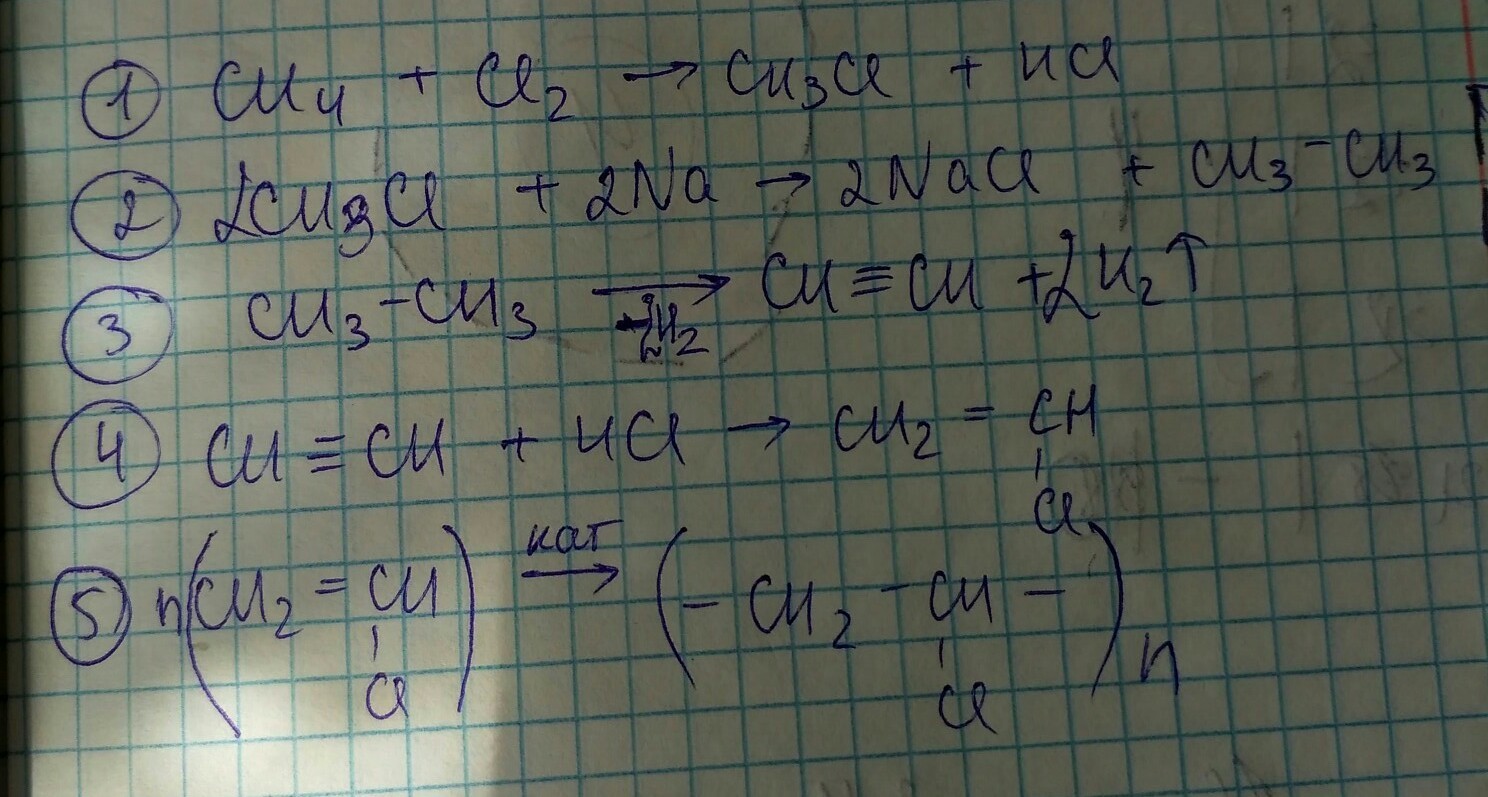 ① CH₄ + Cl₂ → CH₃Cl + HCl
② 2CH₃Cl + 2Na → 2NaCl + CH₃-CH₃
③ CH₃-CH₃ → CH≡CH + 2H₂↑
-2H₂
④ CH≡CH + HCl → CH₂=CH
Cl
кат
⑤ n(CH₂=CH) → (-CH₂-CH-)n
Cl Cl